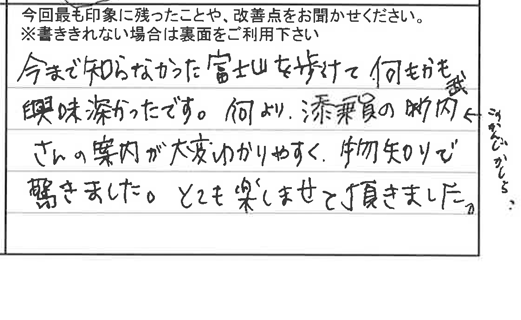 今回最も印象に残ったことや、改善点をお聞かせください。
※書ききれない場合は裏面をご利用下さい
今まで知らなかった富士山を歩けて何もかも
武
興味深かったです。何より、添乗員の内
←このかんじかしら?
さんの案内が大変わかりやすく、物知りで
驚きました。とても楽しませて頂きました。